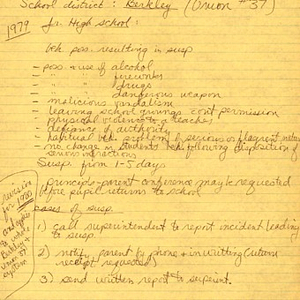 School district : Berkley (Union #37)
1979 for High School :
beh. pos. resulting in susp
- poss. & use of alcohol
" " fireworks
" " drugs
" " dangerous weapon
- malicious vandalism
- leaving school grounds cont permission
- physical violence to a teacher
- defiance of authority
- habitual beh. problem of serious or flagrant nature
- no change in student beh following disposition of serious infractions
Susp from 1-5 days
principle-parent conference may be requested
before pupil returns to school
of susp.
1) call superintendent to report incident leading
to susp.
2) notify parent by phone + in writting (return
receipt requested)
3) send written report to superint.
for 1981
and applies
to whole
Berkley &
Union 37
system